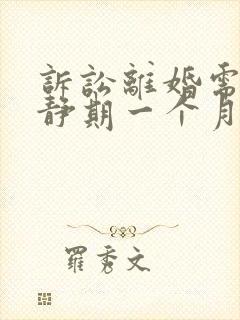 訴訟離婚需
静期一个月
羅秀文